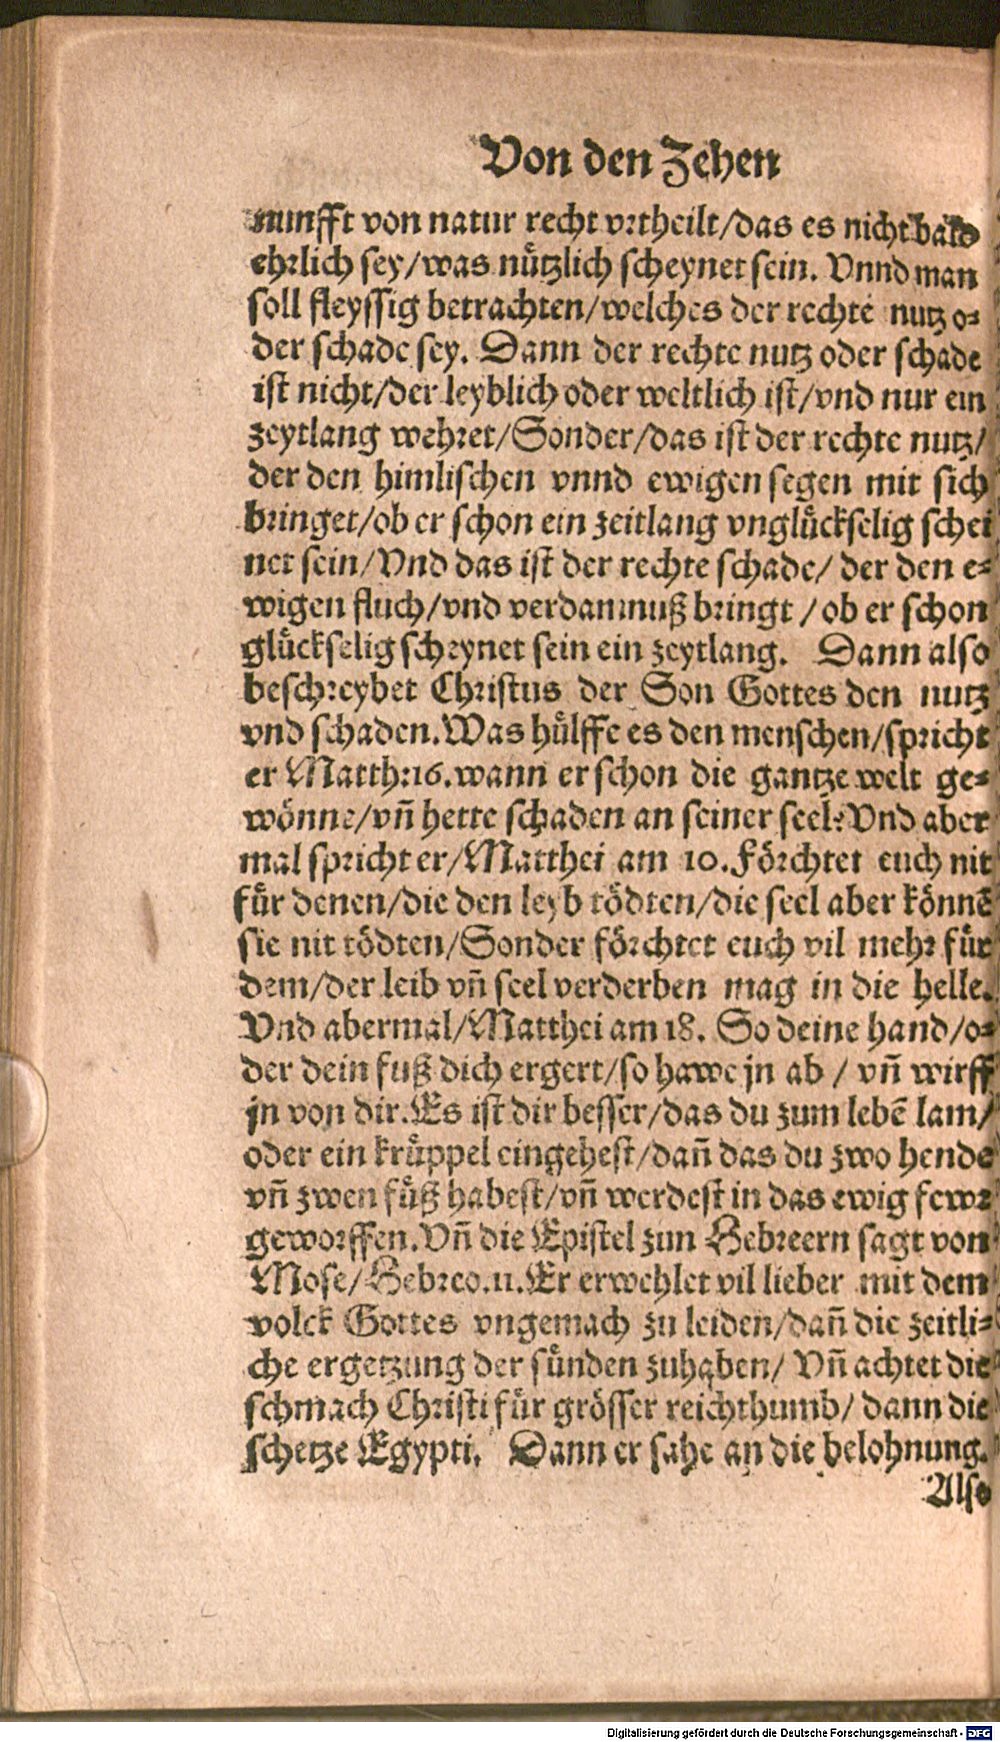 Von den Zehen
nunfft von natur recht vrtheilt/das es nicht bald
ehrlich sey/was nützlich scheynet sein. Vnnd man
soll fleyssig betrachten/welches der rechte nutz o⸗
der schade sey. Dann der rechte nutz oder schade
ist nicht/der leyblich oder weltlich ist/vnd nur ein
zeytlang wehret/Sonder/das ist der rechte nutz/
der den himlischen vnnd ewigen segen mit sich
bringet/ob er schon ein zeitlang vnglückselig schei
net sein/Vnd das ist der rechte schade/ der den e⸗
wigen fluch/vnd verdamnuß bringt /ob er schon
glückselig scheynet sein ein zeytlang. Dann also
beschreybet Christus der Son Gottes den nutz
vnd schaden. Was hülffe es den menschen/spricht
er Matth: 16. wann er schon die gantze welt ge⸗
wönne/vñ hette schaden an seiner seel: Vnd aber
mal spricht er/Matthei am 10. Förchtet euch nit
für denen/die den leyb tödten/die seel aber könnẽ
sie nit tödten/Sonder förchtet euch vil mehr für
dem/der leib vñ seel verderben mag in die helle.
Vnd abermal/Matthei am 18. So deine hand/o⸗
der dein fuß dich ergert/so hawe jn ab / vñ wirff
jn von dir. Es ist dir besser/das du zum lebẽ lam/
oder ein krüppel eingehest/dañ das du zwo hende
vñ zwen füß habest/vñ werdest in das ewig fewr
geworffen. Vñ die Epistel zun Hebreern sagt von
Mose/Hebreo. 11. Er erwehlet vil lieber mit dem
volck Gottes vngemach zu leiden/dañ die zeitli⸗
che ergetzung der sünden zuhaben/ Vñ achtet die
schmach Christi für grösser reichthumb/ dann die
schetze Egypti. Dann er sahe an die belohnung.
Also
Digitalisierung gefördert durch die Deutsche Forschungsgemeinschaft - DFG